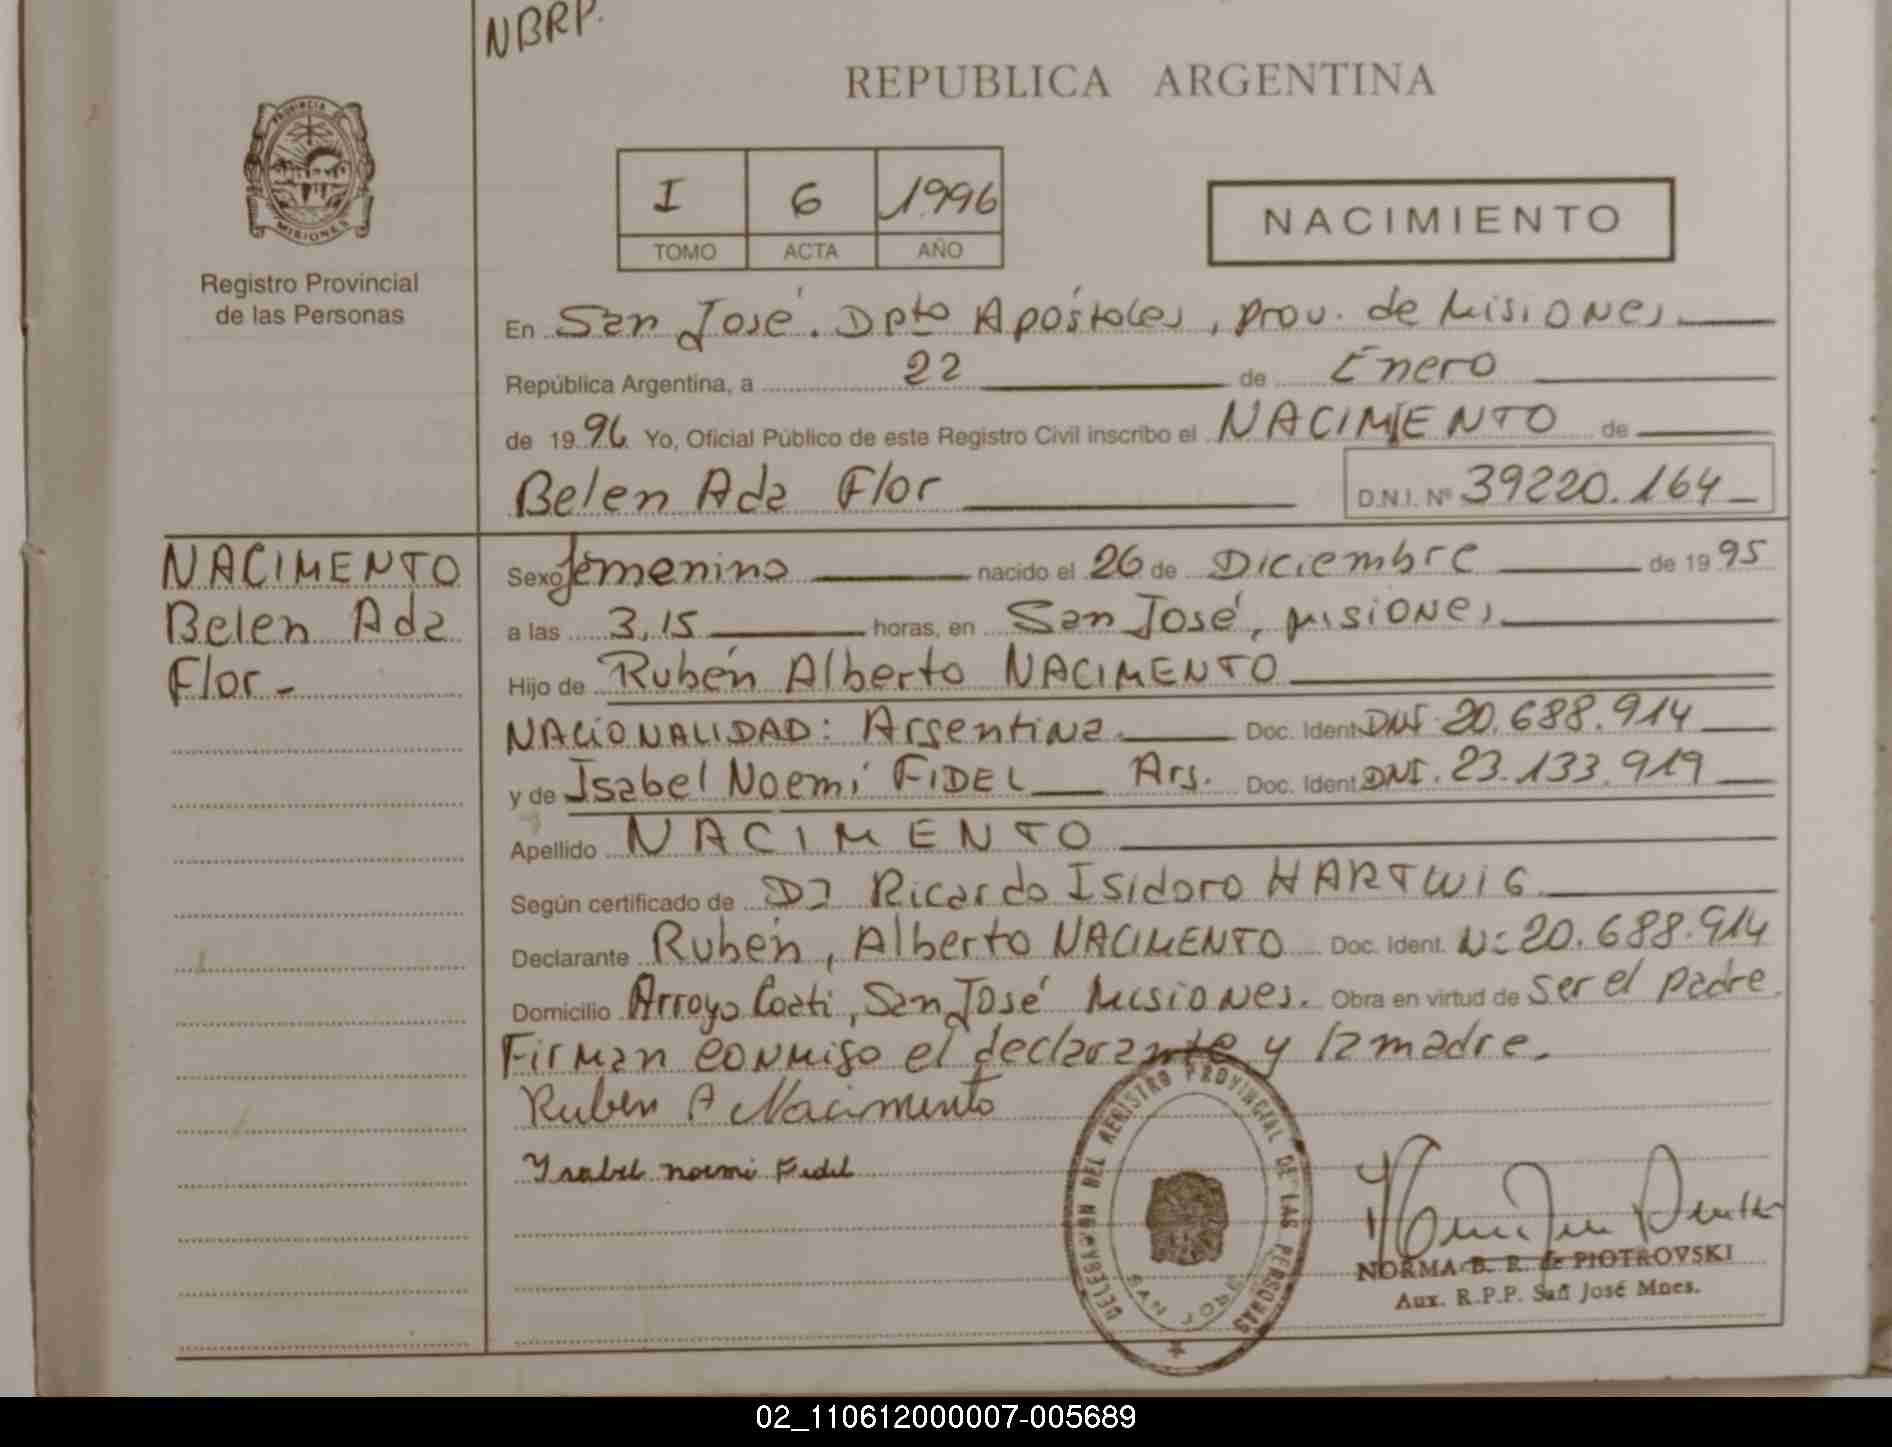 NBRP.
REPUBLICA ARGENTINA
PROVINCIA DE
MISIONES
Registro Provincial
de las Personas
I 6 1996
TOMO ACTA AÑO
NACIMIENTO
En San José. Dpto Apóstoles, prov. de Misiones
República Argentina, a 22 de Enero
de 1996 Yo, Oficial Público de este Registro Civil inscribo el NACIMIENTO de
Belen Ada Flor D.N.I. Nº 39220.164
NACIMENTO
Belen Ada
Flor.
Sexo femenino nacido el 26 de Diciembre de 1995
a las 3,15 horas, en San José, Misiones
Hijo de Rubén Alberto NACIMENTO
NACIONALIDAD: Argentina Doc. Ident DNI 20.688.914
y de Isabel Noemí FIDEL Arg. Doc. Ident DNI. 23.133.919
Apellido NACIMENTO
Según certificado de Ricardo Isidoro HARTWIG
Declarante Rubén, Alberto NACIMENTO Doc. Ident. Nº 20.688.914
Domicilio Arroyo Coati, San José Misiones. Obra en virtud de ser el padre.
Firman conmigo el declarante y la madre.
Ruben A Nacimento
Ysabel noemi Fidel
DELEGACIÓN DEL REGISTRO PROVINCIAL DE LAS PERSONAS
SAN JOSE
NORMA B. R. de PIOTROVSKI
Aux. R.P.P. San José Mnes.
02_110612000007-005689